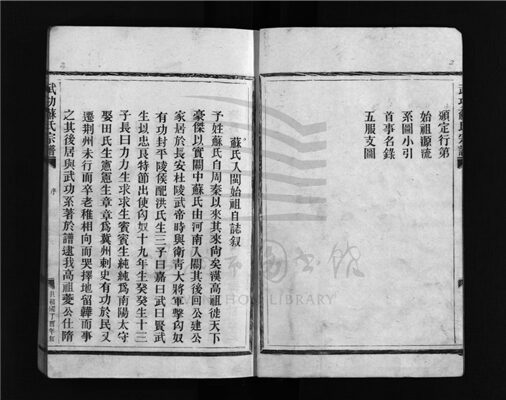 武功蘇氏宗譜
頒定行第
始祖源流
系圖小引
首事名錄
五服支圖
蘇氏入閩始祖自誌叙
予姓蘇氏自周秦以來其來尙矣漢高祖徙天下
豪傑以實關中蘇氏由河南入關其後回公建公
家居於長安杜陵武帝時與衛靑大將軍擊匈奴
有功封平陵侯配洪氏生三子曰嘉曰武曰賢武
生以忠良特節出使匈奴十九年生癸癸生十三
子長曰力力生求求生賓賓生純純爲南陽太守
娶田氏生憲憲生章章爲冀州刺史有功於民又
遷荆州未行而卒老稚相向而哭擇地留葬而事
之其後居與武功系著於譜逮我高祖夔公仕隋
武功蘇氏宗譜
序
LIBRARY